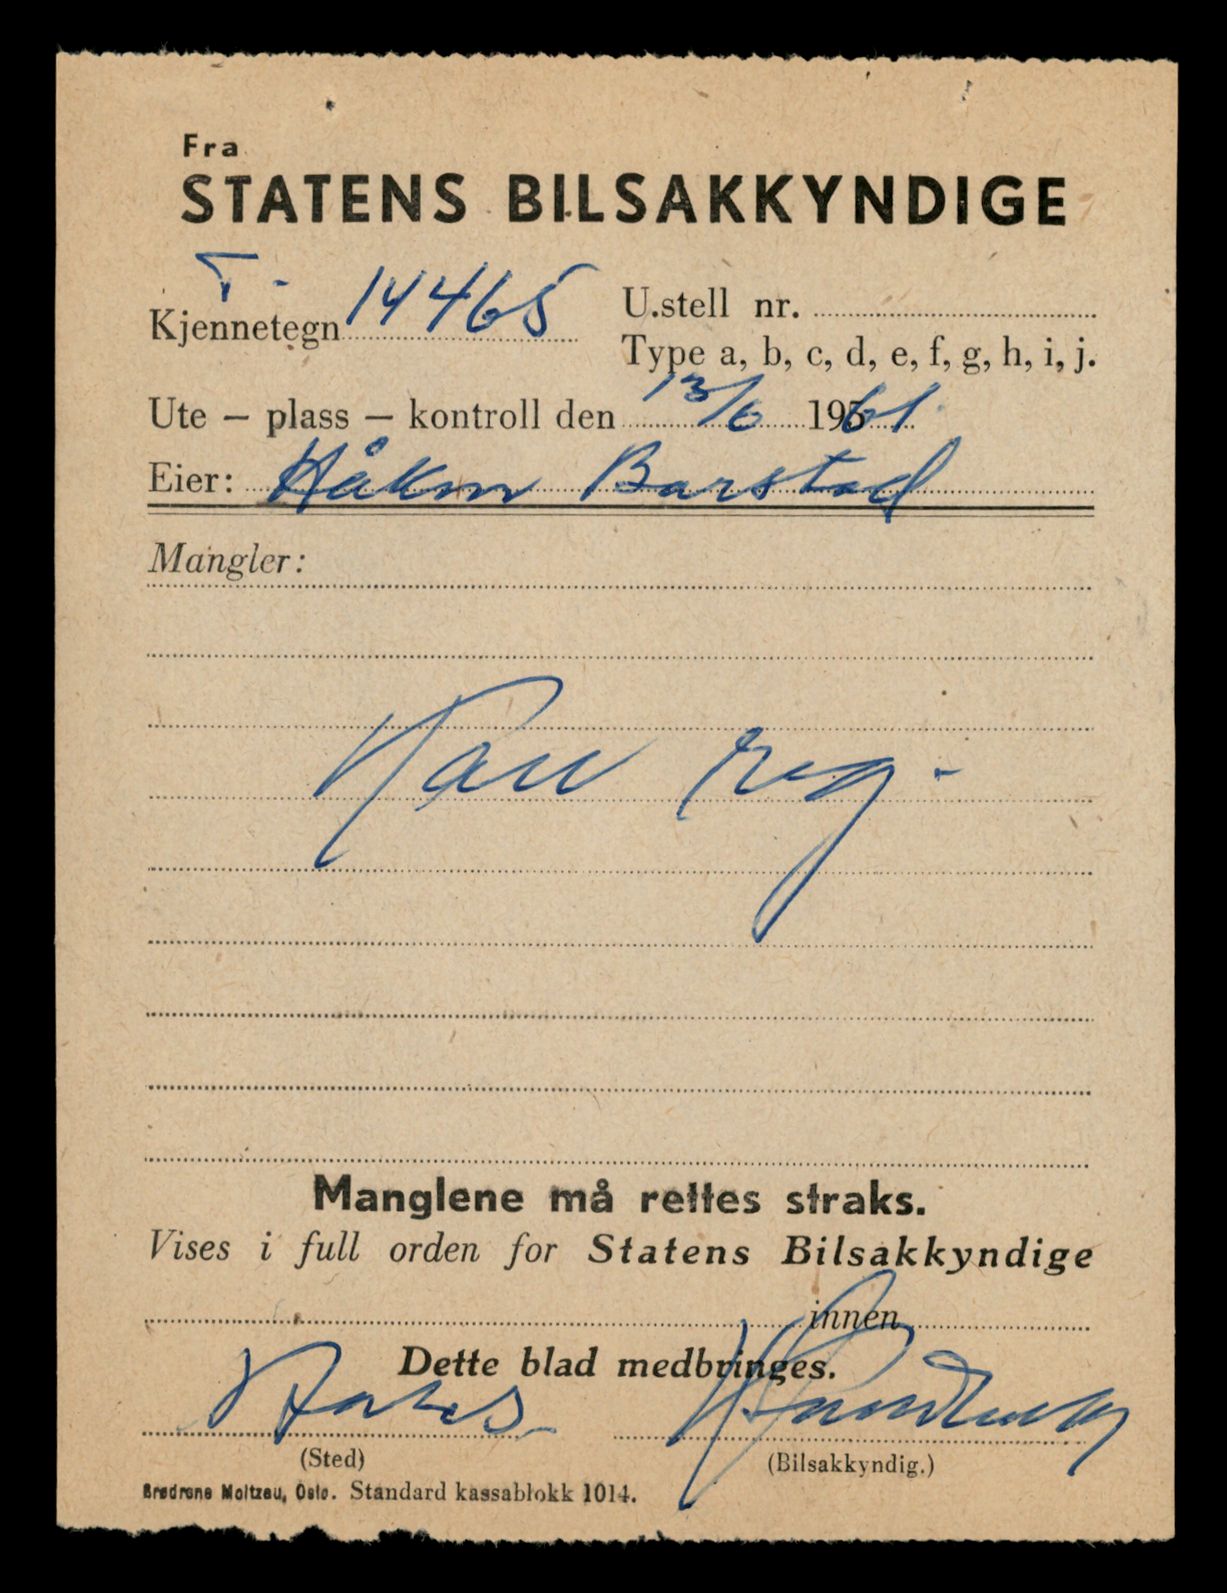 Fra
STATENS BILSAKKYNDIGE
Kjennetegn T- 14465
U.stell nr.
Type a, b, c, d, e, f, g, h, i, j.
Ute — plass — kontroll den 13/6 1961
Eier: Håkon Barstad
Mangler:
Kan reg.
Manglene må rettes straks.
Vises i full orden for Statens Bilsakkyndige
innen
Dette blad medbringes.
(Sted)
(Bilsakkyndig.)
Brødrene Moltzau, Oslo. Standard kassablokk 1014.